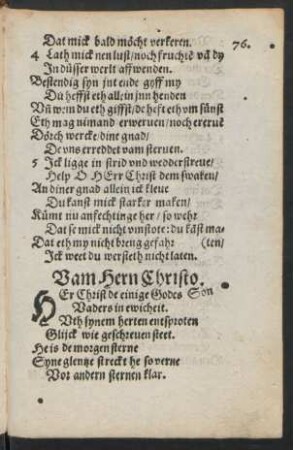 Dat mick bald möcht verkeren.
76.
4 Lath mick nen lust / noch fruchte vā dy
In düsser werlt affwenden.
Bestendig syn jnt ende gyff my
Du heffst eth allein jnn henden
Vn̄ wem du eth giffst / de hefft eth vm sünst
Eth mag nimand erweruen / noch ererue
Dörch wercke / dine gnad /
De vns erreddet vam steruen.
5 Ick ligge in strid vnd wedderstreue /
Help O HErr Christ dem swaken /
An diner gnad allein ick kleue
Du kanst mick starker maken /
Kümt nu anfechtinge her / so wehr
Dat se mick nicht vmstote: du kāst ma-
Dat eth my nicht breng gefahr (ken /
Ick weet du werst eth nicht laten.
Vam Hern Christo.
HEr Christ de einige Godes Son
Vaders in ewicheit.
Vth synem herten entsproten
Glijck wie geschreuen steet.
He is de morgen sterne
Syne glentze streckt he so verne
Vor andern sternen klar.